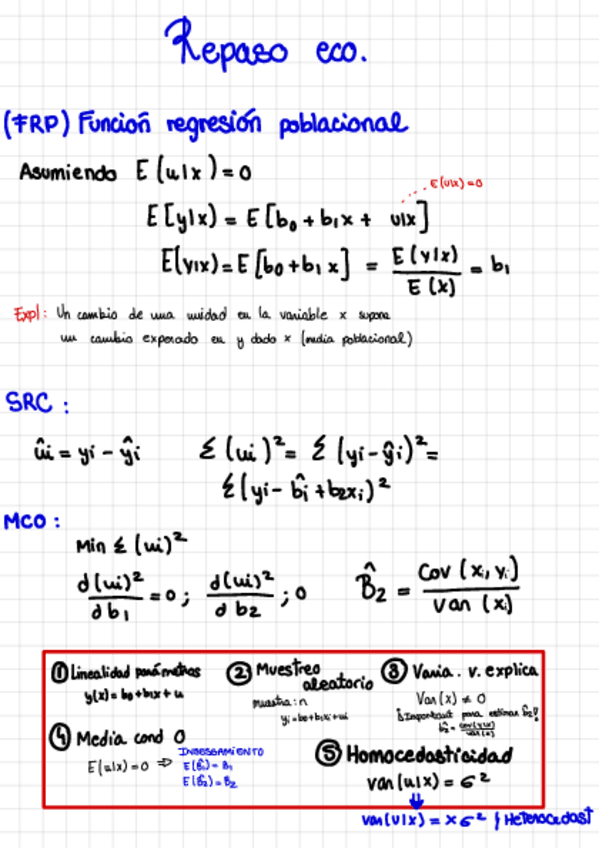 Repaso eco.
(FRP) Función regresión poblacional
Asumiendo E(u|x) = 0
E(u|x) = 0
E[y|x) = E[b₀ + b₁x + u|x]
E(y|x) = E[b₀ + b₁ x] = E(y|x) / E(x) = b₁
Expl: Un cambio de una unidad en la variable x supone
un cambio esperado en y dado x (media poblacional)
SRC :
ûi = yi − ŷi Σ(ui)² = Σ(yi − ŷi)² =
Σ(yi − b̂i + b₂xi)²
MCO :
Min Σ(ui)²
d(ui)² / d b₁ = 0 ; d(ui)² / d b₂ ; 0 B̂₂ = Cov (xi, yi) / Var (xi)
① Linealidad parámetros
y(x) = b₀ + b₁x + u
② Muestreo
aleatorio
muestra: n
yi = b₀ + b₁xi + ui
③ Varia. v. explica
Var(x) ≠ 0
¡Important para estimar b̂₂!
b̂₂ = cov(y,x) / var(x)
④ Media cond 0
E(u|x) = 0 ⇒
INSESGAMIENTO
E(B̂₁) = B₁
E(B̂₂) = B₂
⑤ Homocedasticidad
var(u|x) = σ²
var(u|x) = xσ² } Heterocedast